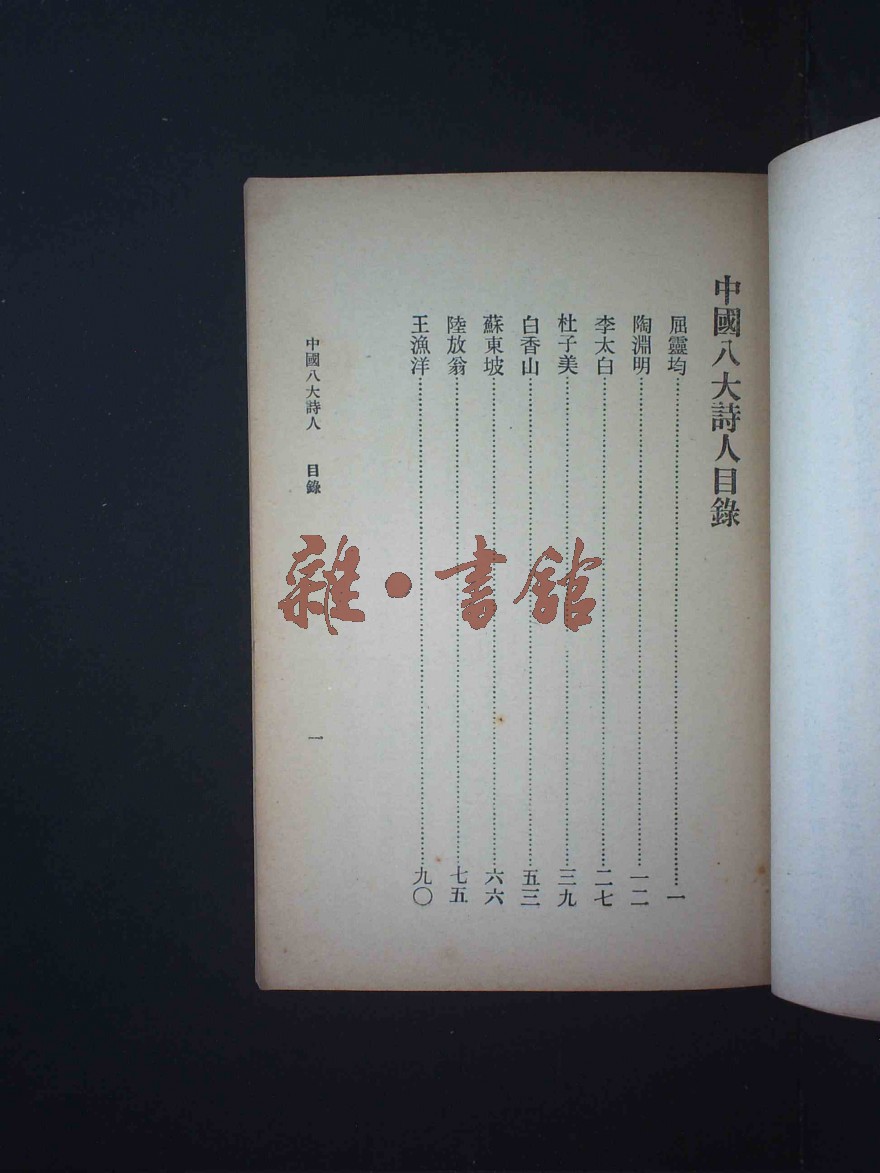 中國八大詩人目錄
屈靈均……一
陶淵明……一二
李太白……二七
杜子美……三九
白香山……五三
蘇東坡……六六
陸放翁……七五
王漁洋……九〇
中國八大詩人 目錄 一
雜·書館